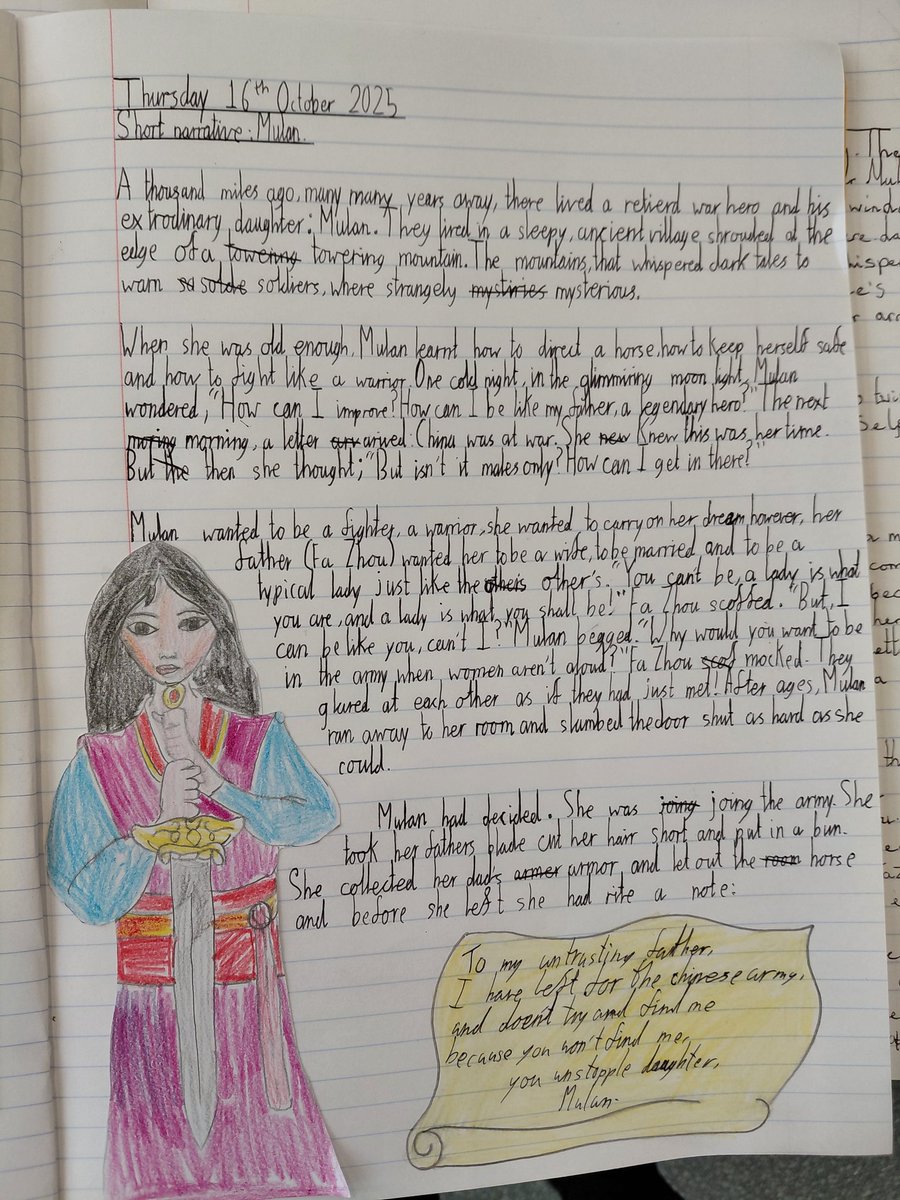 Thursday 16th October 2025
Short narrative: Mulan.
A thousand miles ago, many many years away, there lived a retierd war hero and his
extrodinary daughter: Mulan. They lived in a sleepy, ancient village, shrouded at the
edge of a towering towering mountain. The mountains, that whispered dark tales to
warn so solde soldiers, where strangely mystiries mysterious.
When she was old enough, Mulan learnt how to direct a horse, how to keep herself safe
and how to fight like a warrior. One cold night, in the glimmiring moon light, Mulan
wondered, "How can I improve? How can I be like my father, a legendary hero?" The next
moring morning, a letter arv arived. China was at war. She new knew this was her time.
But the then she thought; "But isn't it males only? How can I get in there?"
Mulan wanted to be a fighter, a warrior, she wanted to carry on her dream however, her
father (Fa Zhou) wanted her to be a wife, to be married, and to be a
typical lady just like the others other's. "You can't be, a lady is what
you are, and a lady is what you shall be!" Fa Zhou scoffed. "But, I
can be like you, can't I?" Mulan begged. "Why would you want to be
in the army when women aren't aloud?" Fa Zhou scof mocked. They
glared at each other as if they had just met! After ages, Mulan
ran away to her room and slambed the door shut as hard as she
could.
Mulan had decided. She was joing joing the army. She
took her fathers blade cut her hair short and put in a bun.
She collected her dads armer armor and let out the room horse
and before she left she had rite a note:
To my untrusting father,
I have left for the chinese army,
and doent try and find me
because you won't find me,
you unstopple daughter,
Mulan.